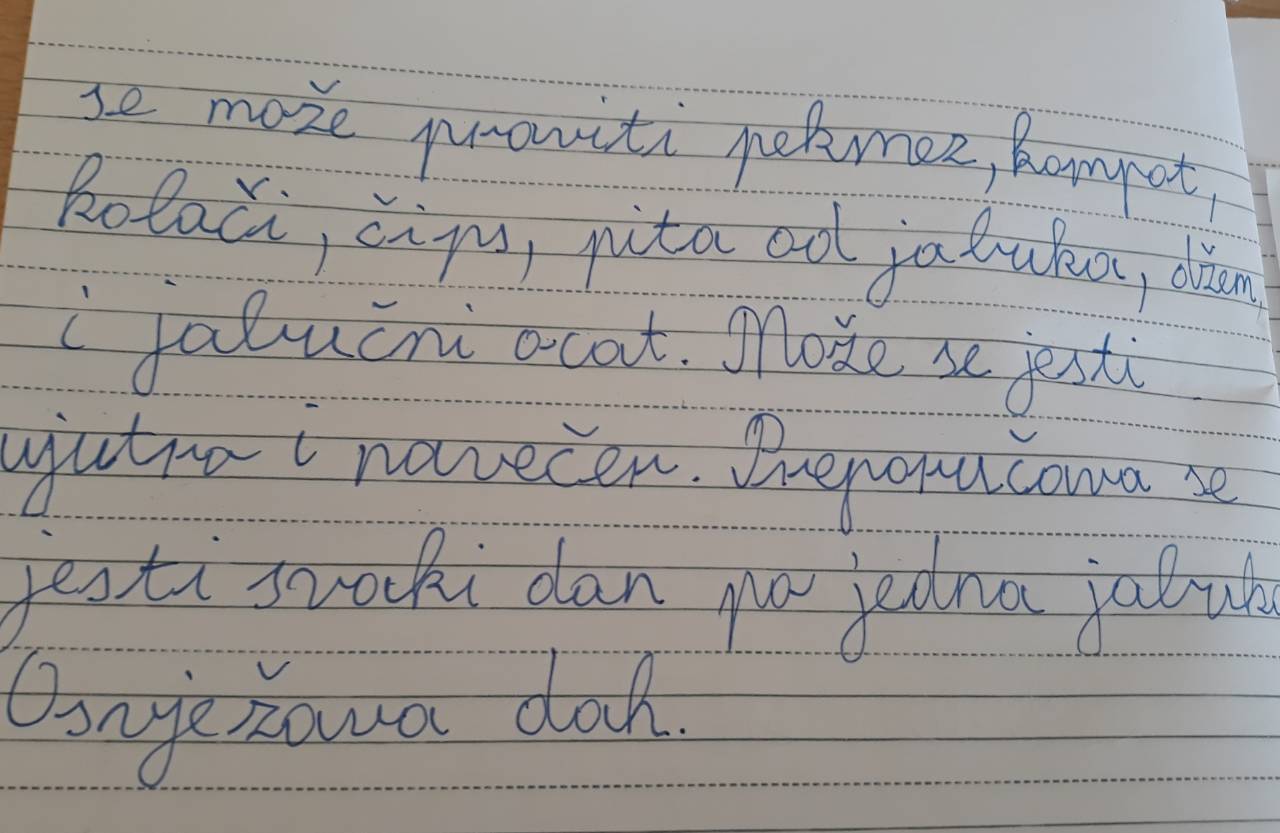 se može praviti pekmez, kompot,
kolači, čips, pita od jabuka, džem,
i jabučni ocat. Može se jesti
ujutro i navečer. Preporučava se
jesti svaki dan po jedna jabuka
Osvježava dah.